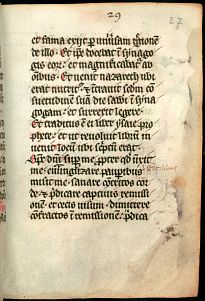 29
27
et fama exijt p uniūsam regionē
de illo. Et ipē docebat ī synago
gis eoꝝ. et magnificabatᷣ ab
oībus. Et uenit nazareth ubi
erat nutritᷣ. ⁊ ītrauit scdm cō
suetudinē suā die sabbī ī syna
gogam. et surrexit legere.
Et traditus ē ei liber ysaie pro
phete. et ut reuoluit librū in
uenit locū ubi sc̄ptū erat.
Sp̄s dn̄i suꝑ me. propter qd̄ unxit
me. euāngelizare pauperibus
misit me. sanare cōtritos cor
de. ⁊ p̄dicare captiuis remissi
onē. et cecis uisum. dimittere
confractos ī remissionē. p̄dica